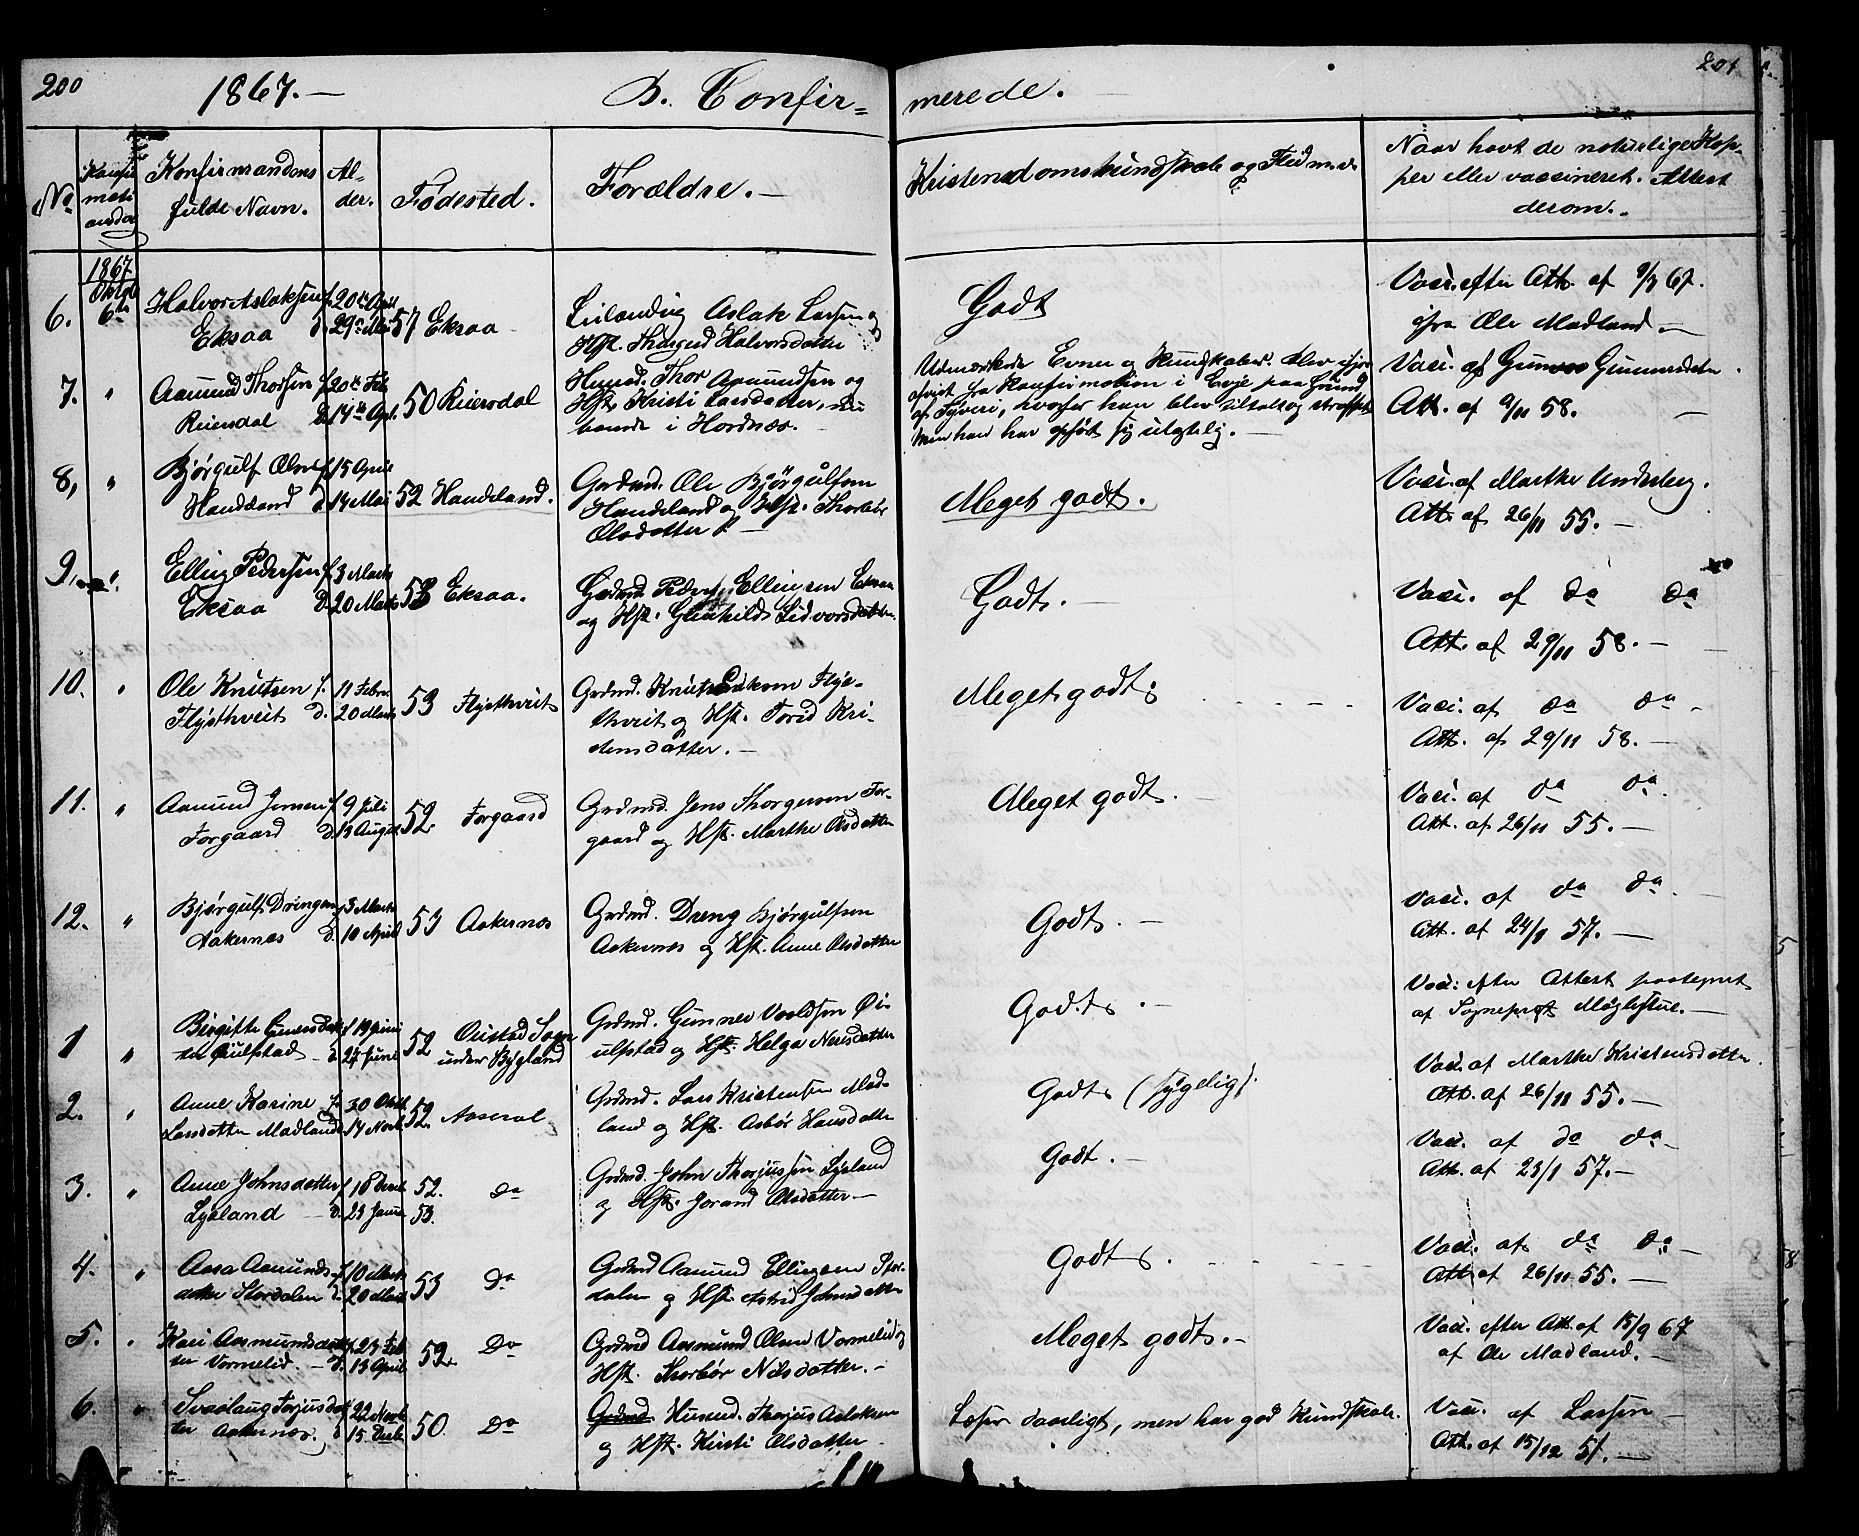 200
1867.—
B. Confir=
merede.
201
No
Konfir
mati
onsdag
Konfirmandens
fulde Navn.
Al-
der.
Fødested.
Forældre.—
Kristendomskundskab og Flid m. v.
Naar havt de naturlige Kop-
per eller vaccineret. Attest
derom.
1867
Oktob
6te
6.
Halvor Aslaksen
Eksaa
f. 20de April
d. 29de Mai
57
Eksaa
Leilænding Aslak Larsen og
Hst. Thorgerd Halvorsdatter
Godt
Vaci. efter Att. af 9/3 67.
fra Ole Madland.—
7.
"
Aamund Thorsen
Reiersdal
f. 20de Feb
d. 14de Apr.
50
Reiersdal
Husmd. Thor Aamundsen og
Hst. Kristi Larsdatter, nu
boende i Hordnæs.
Udmærkede Evner og Kundskaber. Blev
afvist fra Konfirmation i Evje paa Grund
af Tyveri, hvorfor han blev tiltalt og straffet
Men han har opført sig ulastelig.—
Vaci. af Gunvor Gunnersdatter.
Att. af 9/11 58.—
8,
"
Bjørgulf Olsen
Handeland
f. 15 April
d. 14 Mai
52
Handeland.
Grdmd. Ole Bjørgulfsen
Handeland og Hst. Thorbør
Olsdatter.—
Meget godt.
Vaci. af Marthe Underberg.
Att. af 26/11 55.—
9,
"
Elling Pedersen
Eksaa
f. 3 Marts
d. 20 Marts
53
Eksaa.
Grdmd Peder Ellingsen Eksaa
og Hst. Gunhild Sidvorsdatter.
Godt.—
Vaci. af do do
Att. af 29/11 58.—
10.
"
Ole Knutsen
Flysthveit
f. 11 Febru
d. 20 Marts
53
Flysthveit
Grdmd. Knut Eriksen Flyst-
hveit og Hst. Torid Kri-
stensdatter.—
Meget godt
Vaci. af do do -
Att. af 29/11 58.—
11.
"
Aamund Jensen
Forgaard
f. 9 Juli
d. 13 August
52.
Forgaard
Grdmd. Jens Thorgersen For-
gaard og Hst. Marthe Olsdatter
Meget godt.—
Vaci. af do do.
Att. af 26/11 55.—
12.
"
Bjørgulf Drengsen
Aakernæs
f. 3 Marts
d. 10 April
53
Aakernæs
Grdmd. Dreng Bjørgulfsen
Aakernæs og Hst. Anne Olsdatter
Godt.—
Vaci. af do do.
Att. af 24/1 57.—
1
"
Birgitte Gunnersdat-
ter Øiulfstad
f. 19 Juni
d. 27 Juni
52
Østad Sogn
under Bygland
Grdmd. Gunner Voldsen Øi-
ulfstad og Hst. Helga Nerisdatter
Godt.—
Vaci. efter Attest paategnet
af Sogneprst Møglestue.—
2.
"
Anne Karine
Larsdatter Madland
f. 30 Oktb
d. 14 Novb
52.
Aaseral
Grdmd. Lars Kristensen Mad-
land og Hst. Asbør Hansdatter
Godt (sygelig).
Vaci. af Marthe Kristensdatter.
Att. af 26/11 55.—
3.
"
Anne Johnsdatter
Lysland
f. 10 Decb
d. 23 Janu
52.
53.
Do
Grdmd. John Thorjussen Lysland
og Hst. Jorand Olsdatter.—
Godt.—
Vaci. af do do.
Att. af 23/1 57.—
4.
"
Aasa Aamunds-
datter Stordalen
f. 10 Marts
d. 20 Marts
53
Do
Grdmd Aamund Ellingsen Stor-
dalen og Hst. Astrid Johnsdatter
Godt
Vaci. af do do.—
Att. af 26/11 55.—
5.
"
Kari Aasmundsdat-
ter Vormelid.—
f. 23 Feb
d. 13 April
52.
Do
Grdmd Aasmund Olsen Vormelid og
Hst. Thorbør Nilsdatter.—
Meget godt.—
Vaci. efter Att. af 15/9 67
af Ole Madland.—
6.
"
Svaalaug Torjusdat-
ter Aakernæs.
f. 22 Novb
d. 15 Decb
50.
Do
Grdmd Husmd. Thorjus Aslaksen
og Hst. Kirsti Olsdatter
Læser daarligt, men har god Kundskab.
Vaci. af Larsen
Att. af 15/12 51.—